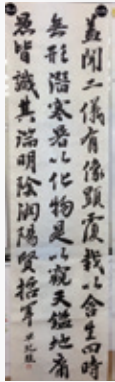 盖闻二仪有像顕覆载以含生四时
無形潜寒暑以化物是以窥天鑑地庸
愚皆識其端明陰洞陽賢哲罕